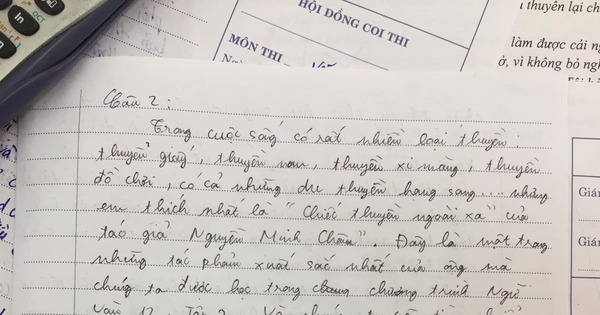 HỘI ĐỒNG COI THI
MÔN THI
i thuyên lại ch
làm được cái ng
ở, vì không bỏ ngh
Câu 2 :
Trong cuộc sống có rất nhiều loại thuyền :
thuyền giấy, thuyền nan, thuyền xi măng, thuyền
đồ chơi, có cả những du thuyền hạng sang.... nhưng
em thích nhất là "Chiếc thuyền ngoài xa" của
tác giả Nguyễn Minh Châu". Đây là một trong
những tác phẩm xuất sắc nhất của ông mà
chúng ta được học trong chương trình Ngữ
Văn 12, Tập 2.
Giám
Giám
In